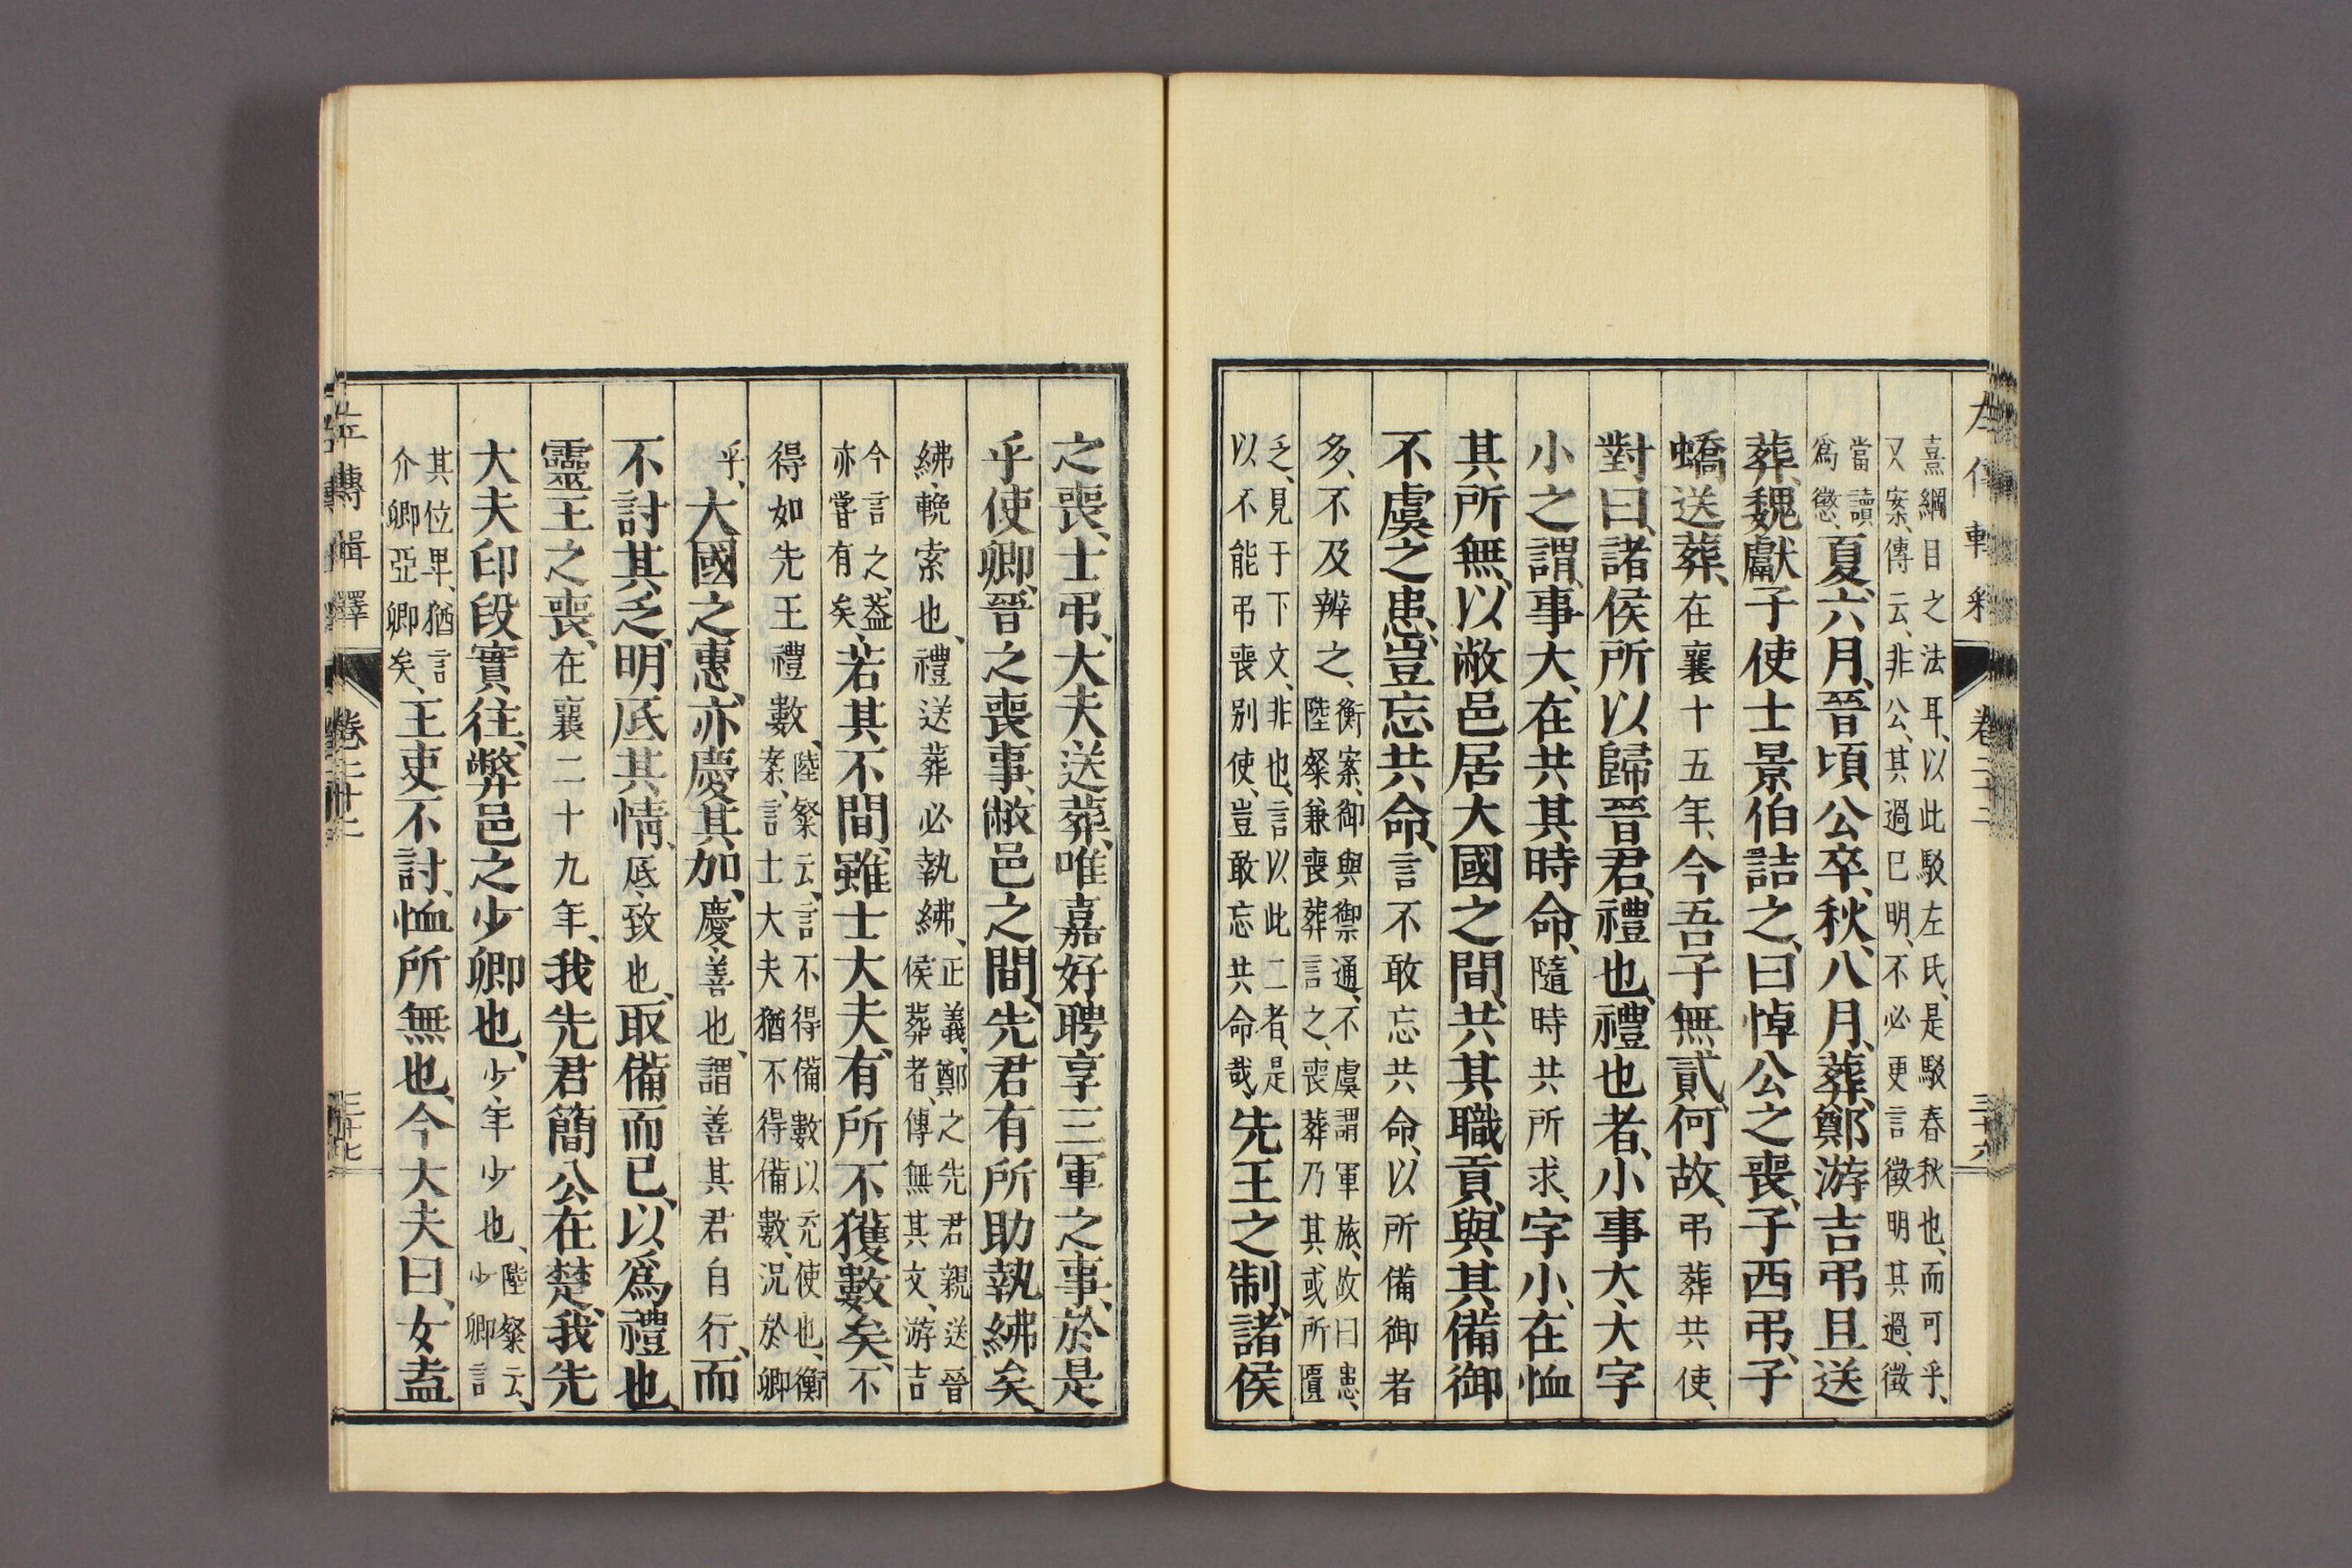 熹綱目之法耳、以此駁左氏、是駁春秋也、而可乎、
又案、傳云、非公、其過已明、不必更言徵明其過、徵
當讀
爲懲、
夏、六月、晉頃公卒、秋、八月、葬、鄭游吉弔、且送
葬、魏獻子使士景伯詰之、曰、悼公之喪、子西弔、子
蟜送葬、在襄十五年、今吾子無貳、何故、弔葬共使、
對曰、諸侯所以歸晉君、禮也、禮也者、小事大、大字
小之謂、事大、在共其時命、隨時共所求、字小、在恤
其所無、以敝邑居大國之間、共其職貢、與其備御
不虞之患、豈忘共命、言不敢忘共命、以所備御者
多、不及辨之、
衡案、御與禦通、不虞謂軍旅、故曰患、
陸粲兼喪葬言之、喪葬乃其或所匱
乏、見于下文、非也、言以此二者、是
以不能弔喪別使、豈敢忘共命哉、
先王之制、諸侯
左傳輯釋 卷二十二 三十六
之喪、士弔、大夫送葬、唯嘉好聘享三軍之事、於是
乎使卿、晉之喪事、敝邑之間、先君有所助執紼矣、
紼、輓索也、禮送葬必執紼、
正義、鄭之先君親送晉
侯葬者、傳無其文、游吉
今言之、蓋
亦嘗有矣、
若其不間、雖士大夫、有所不獲數矣、不
得如先王禮數、
陸粲云、言不得備數以充使也、衡
案、言士大夫猶不得備數、況於卿
乎、
大國之惠、亦慶其加、慶、善也、謂善其君自行、而
不討其乏、明厎其情、厎、致也、取備而已、以爲禮也
靈王之喪、在襄二十九年、我先君簡公在楚、我先
大夫印段實往、弊邑之少卿也、少、年少也、
陸粲云、
少卿言
其位卑、猶言
介卿亞卿矣、
王吏不討、恤所無也、今大夫曰、女盍
左傳輯釋 卷二十二 三十七